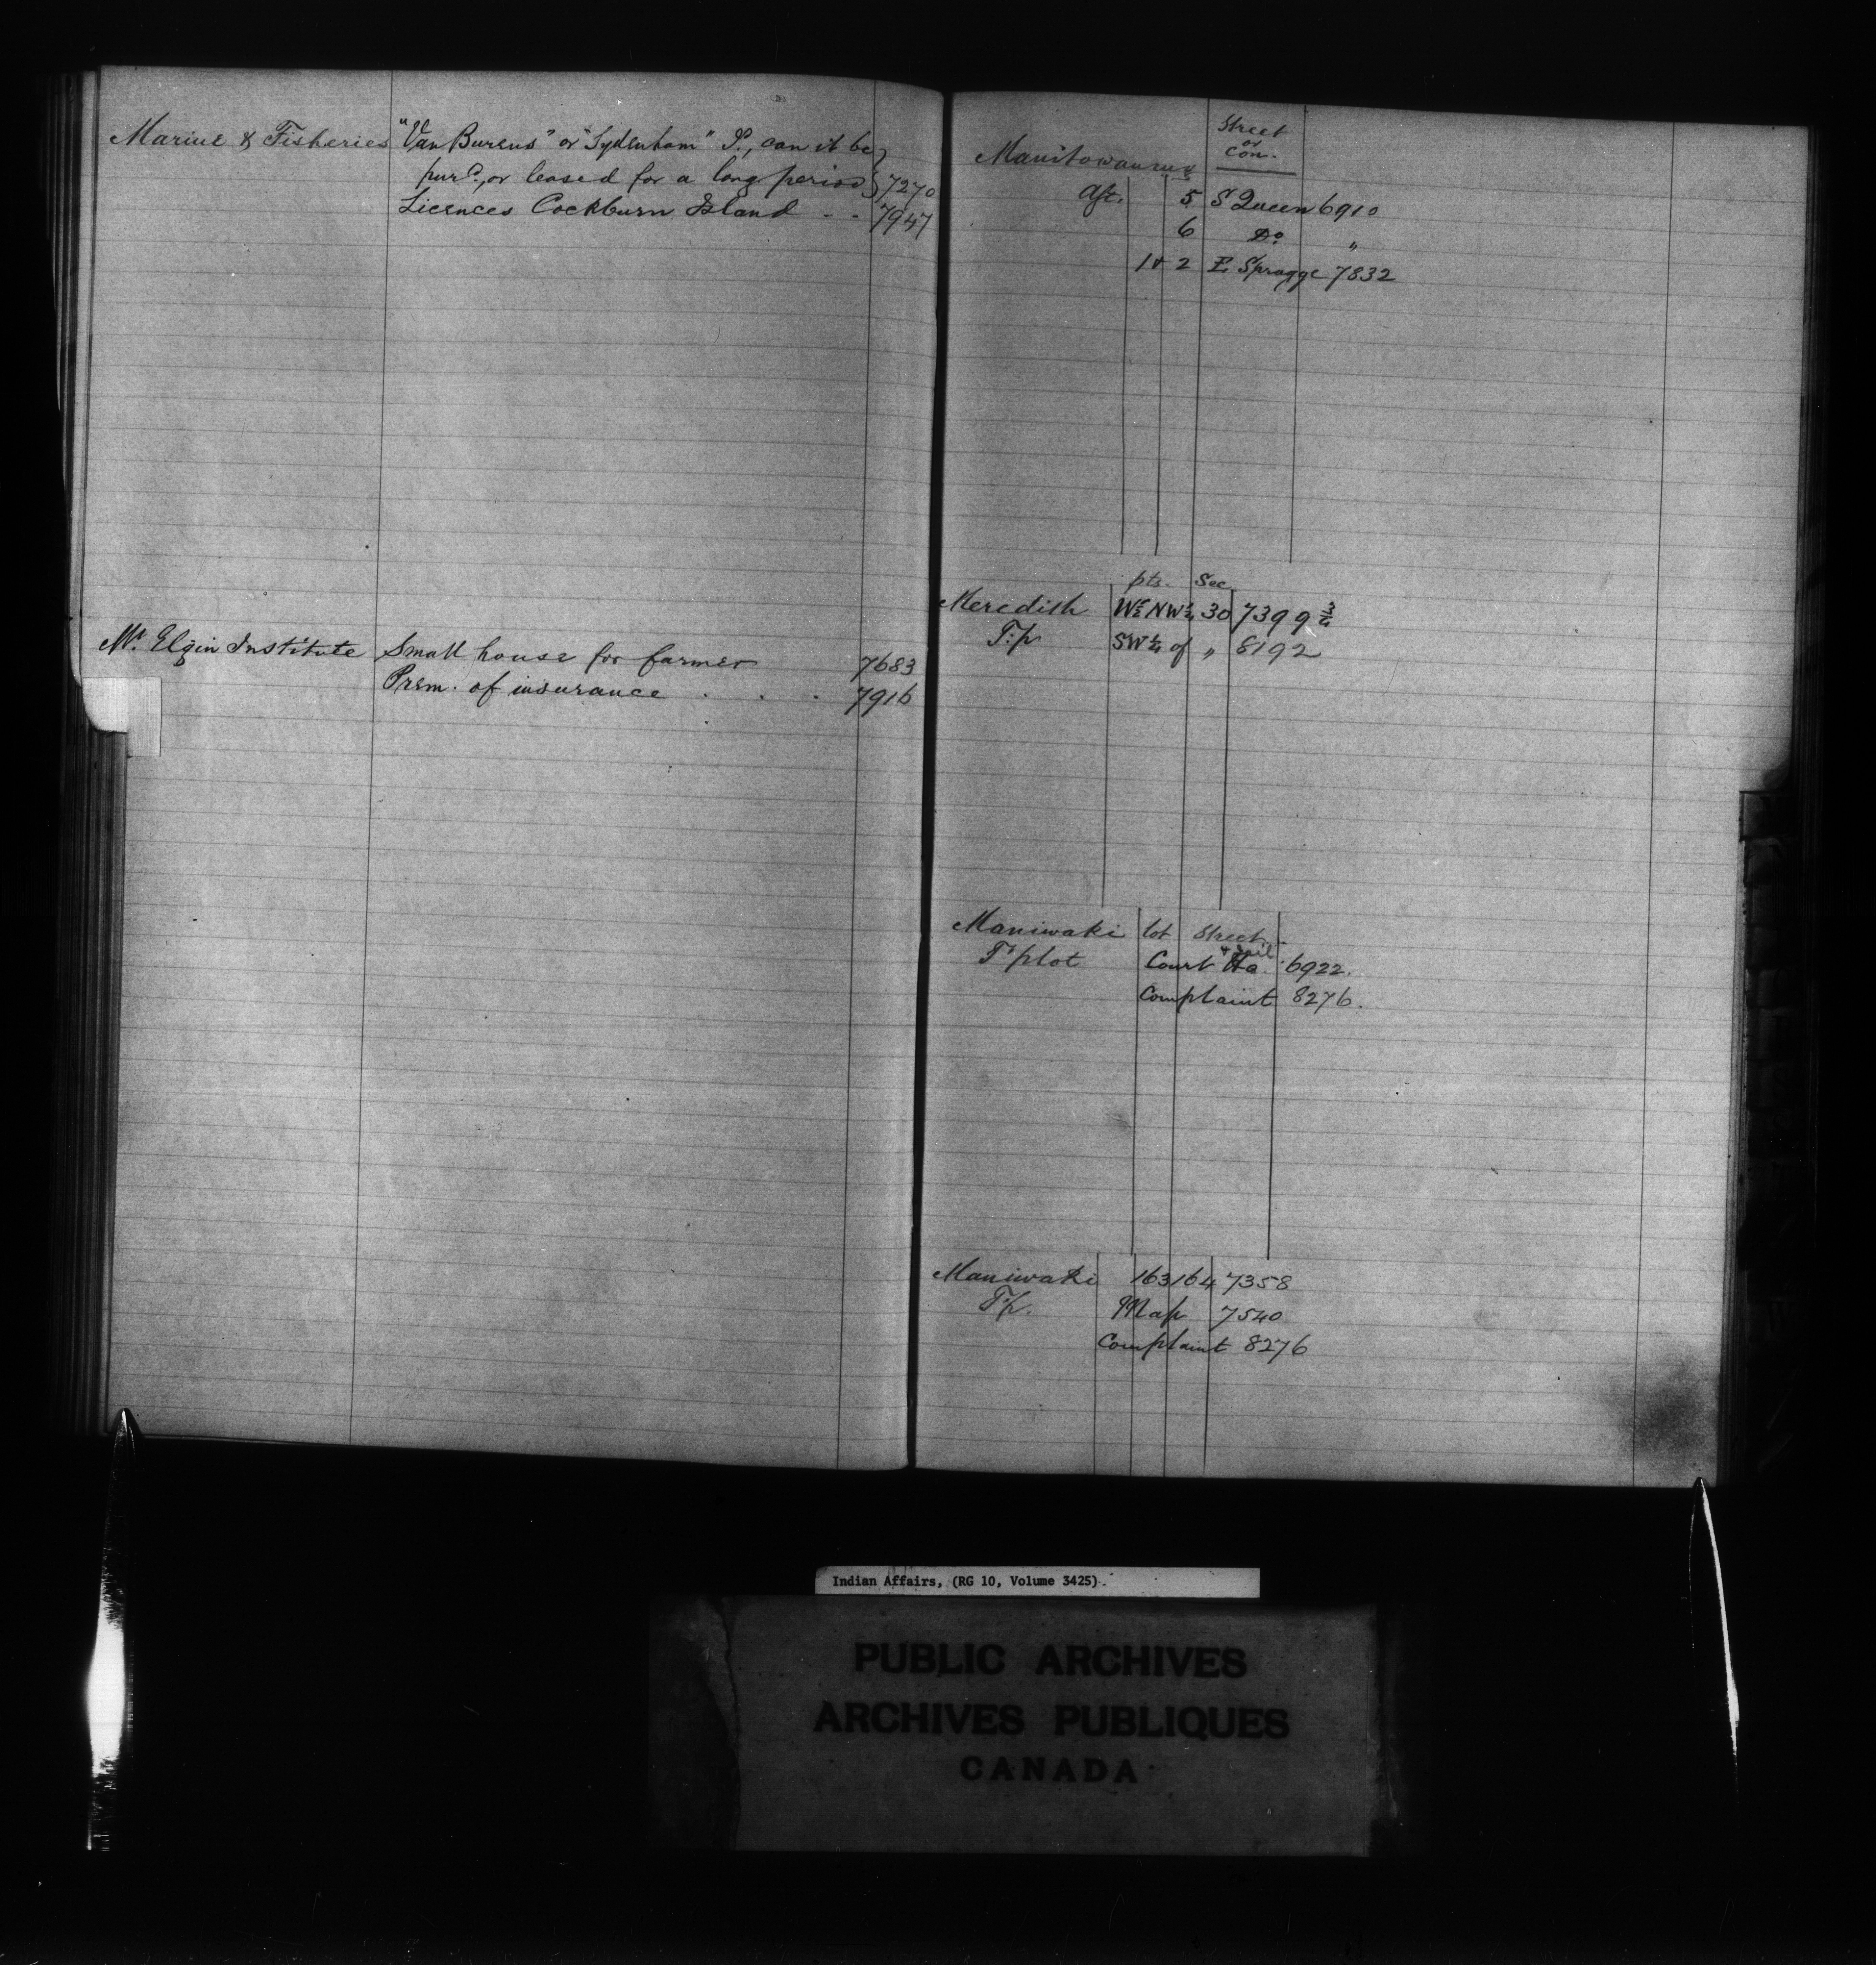 Marine & Fisheries "Van Burens" or "Sydenham" I., can it be
purd., or leased for a long period } 7270
Licences Cockburn Island - - 7947
Mt. Elgin Institute Small house for farmer 7683
Prem. of insurance . . . 7916
Street
or
Con.
Manitowaning
5 S Queen 6910
6 Do "
1 & 2 E Spragge 7832
pts. Sec
Meredith W½ NW¼ 30 7399¾
T.p SW¼ of " 8192
Maniwaki lot Street
& Jail
T plot Court Ho. 6922.
Complaint 8276.
Maniwaki 163 164 7358
T.p. Map 7540
Complaint 8276
Indian Affairs, (RG 10, Volume 3425)
PUBLIC ARCHIVES
ARCHIVES PUBLIQUES
CANADA